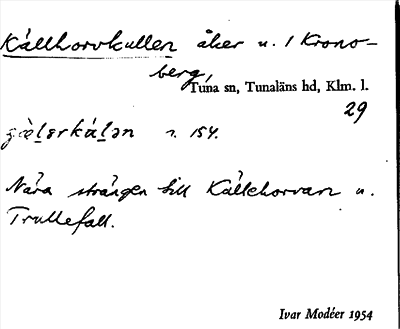 Källhorvkullen åker u. 1 Krono-
berg,
Tuna sn, Tunaläns hd, Klm. l.
29
s. 154.
Nära strängen till Källehorvan u.
Trullefall.
Ivar Modéer 1954